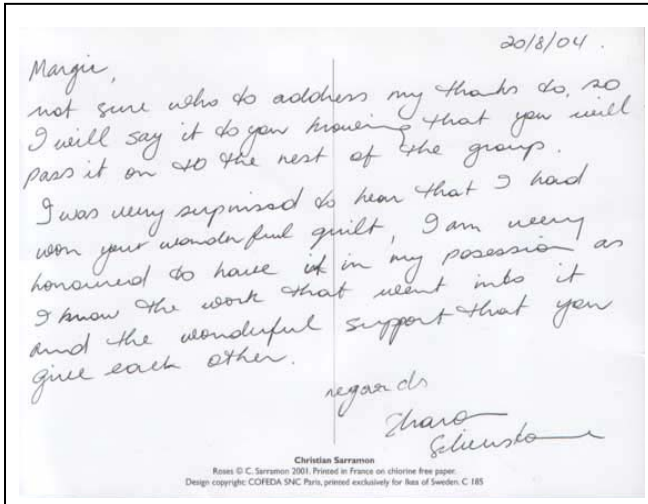 20/8/04.
Margie,
not sure who to address my thanks to, so
I will say it to you knowing that you will
pass it on to the rest of the group.
I was very surprised to hear that I had
won your wonderful quilt, I am very
honoured to have it in my posession as
I know the work that went into it
and the wonderful support that you
give each other.
regards
Christian Sarramon
Roses © C. Sarramon 2001. Printed in France on chlorine free paper.
Design copyright: COFEDA SNC Paris, printed exclusively for Ikea of Sweden. C 185